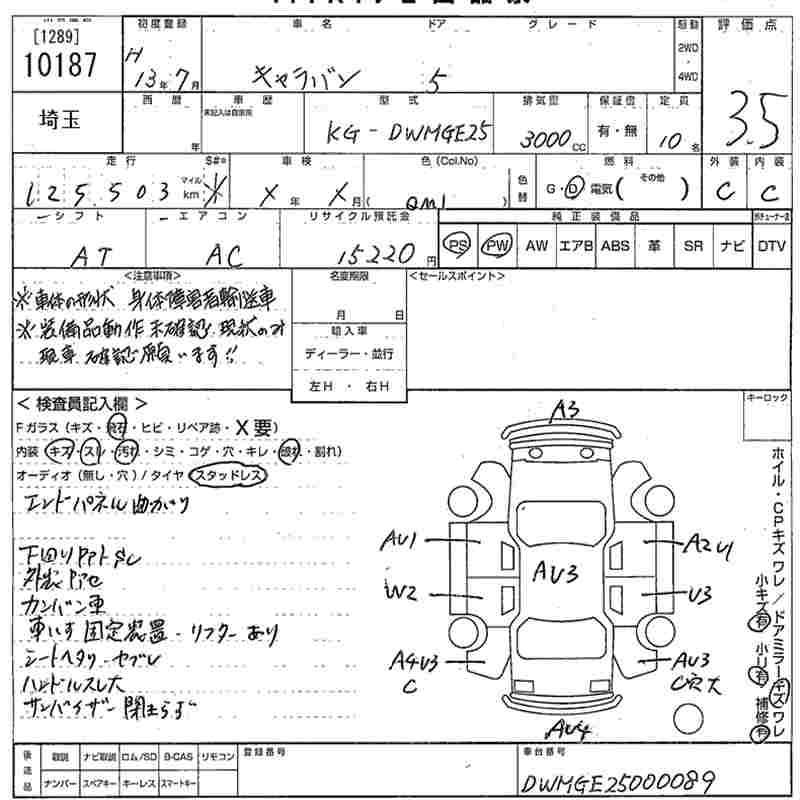 [1289]
10187
初度登録
車名
ドア
グレード
駆動
評価点
H
13年7月
キャラバン
5
2WD
・
4WD
3.5
埼玉
西暦
年
車歴
未記入は自家用
型式
KG-DWMGE25
排気量
3000 CC
保証書
有・無
定員
10名
走行
125503
マイル
km
車検
X年X月
色(Col.No)
色替
燃料
G・D 電気( その他 )
外装
C
内装
C
シフト
AT
エアコン
AC
リサイクル預託金
15220円
純正装備品
PS PW AW エアB ABS 革 SR ナビ DTV
<注意事項>
※車体の形状 身体障害者輸送車
※装備品動作未確認 現状の為
現車確認願います!!
名変期限
月 日
輸入車
ディーラー・並行
左H・右H
<セールスポイント>
<検査員記入欄>
Fガラス(キズ・飛石・ヒビ・リペア跡・X要)
内装(キズ・スレ・汚れ・シミ・コゲ・穴・キレ・割れ)
オーディオ(無し・穴)/タイヤ(スタッドレス)
エンドパネル曲がり
下回りサビ
カンバン車
車いす固定装置・リフターあり
シートヘタリ・ヤブレ
ハンドルスレ大
サンバイザー閉まらず
キーロック
A3
AU1
A2 U1
AU3
W2
U3
A4U3
C
AU3
C穴大
AU4
ホイル・CPキズ ワレ/ドアミラーキズ ワレ
小キズ有 小U有 補修有
後送品
取説 ナビ取説 ロム/SD B-CAS リモコン
ナンバー スペアキー キーレス スマートキー
登録番号
車台番号
DWMGE25000089